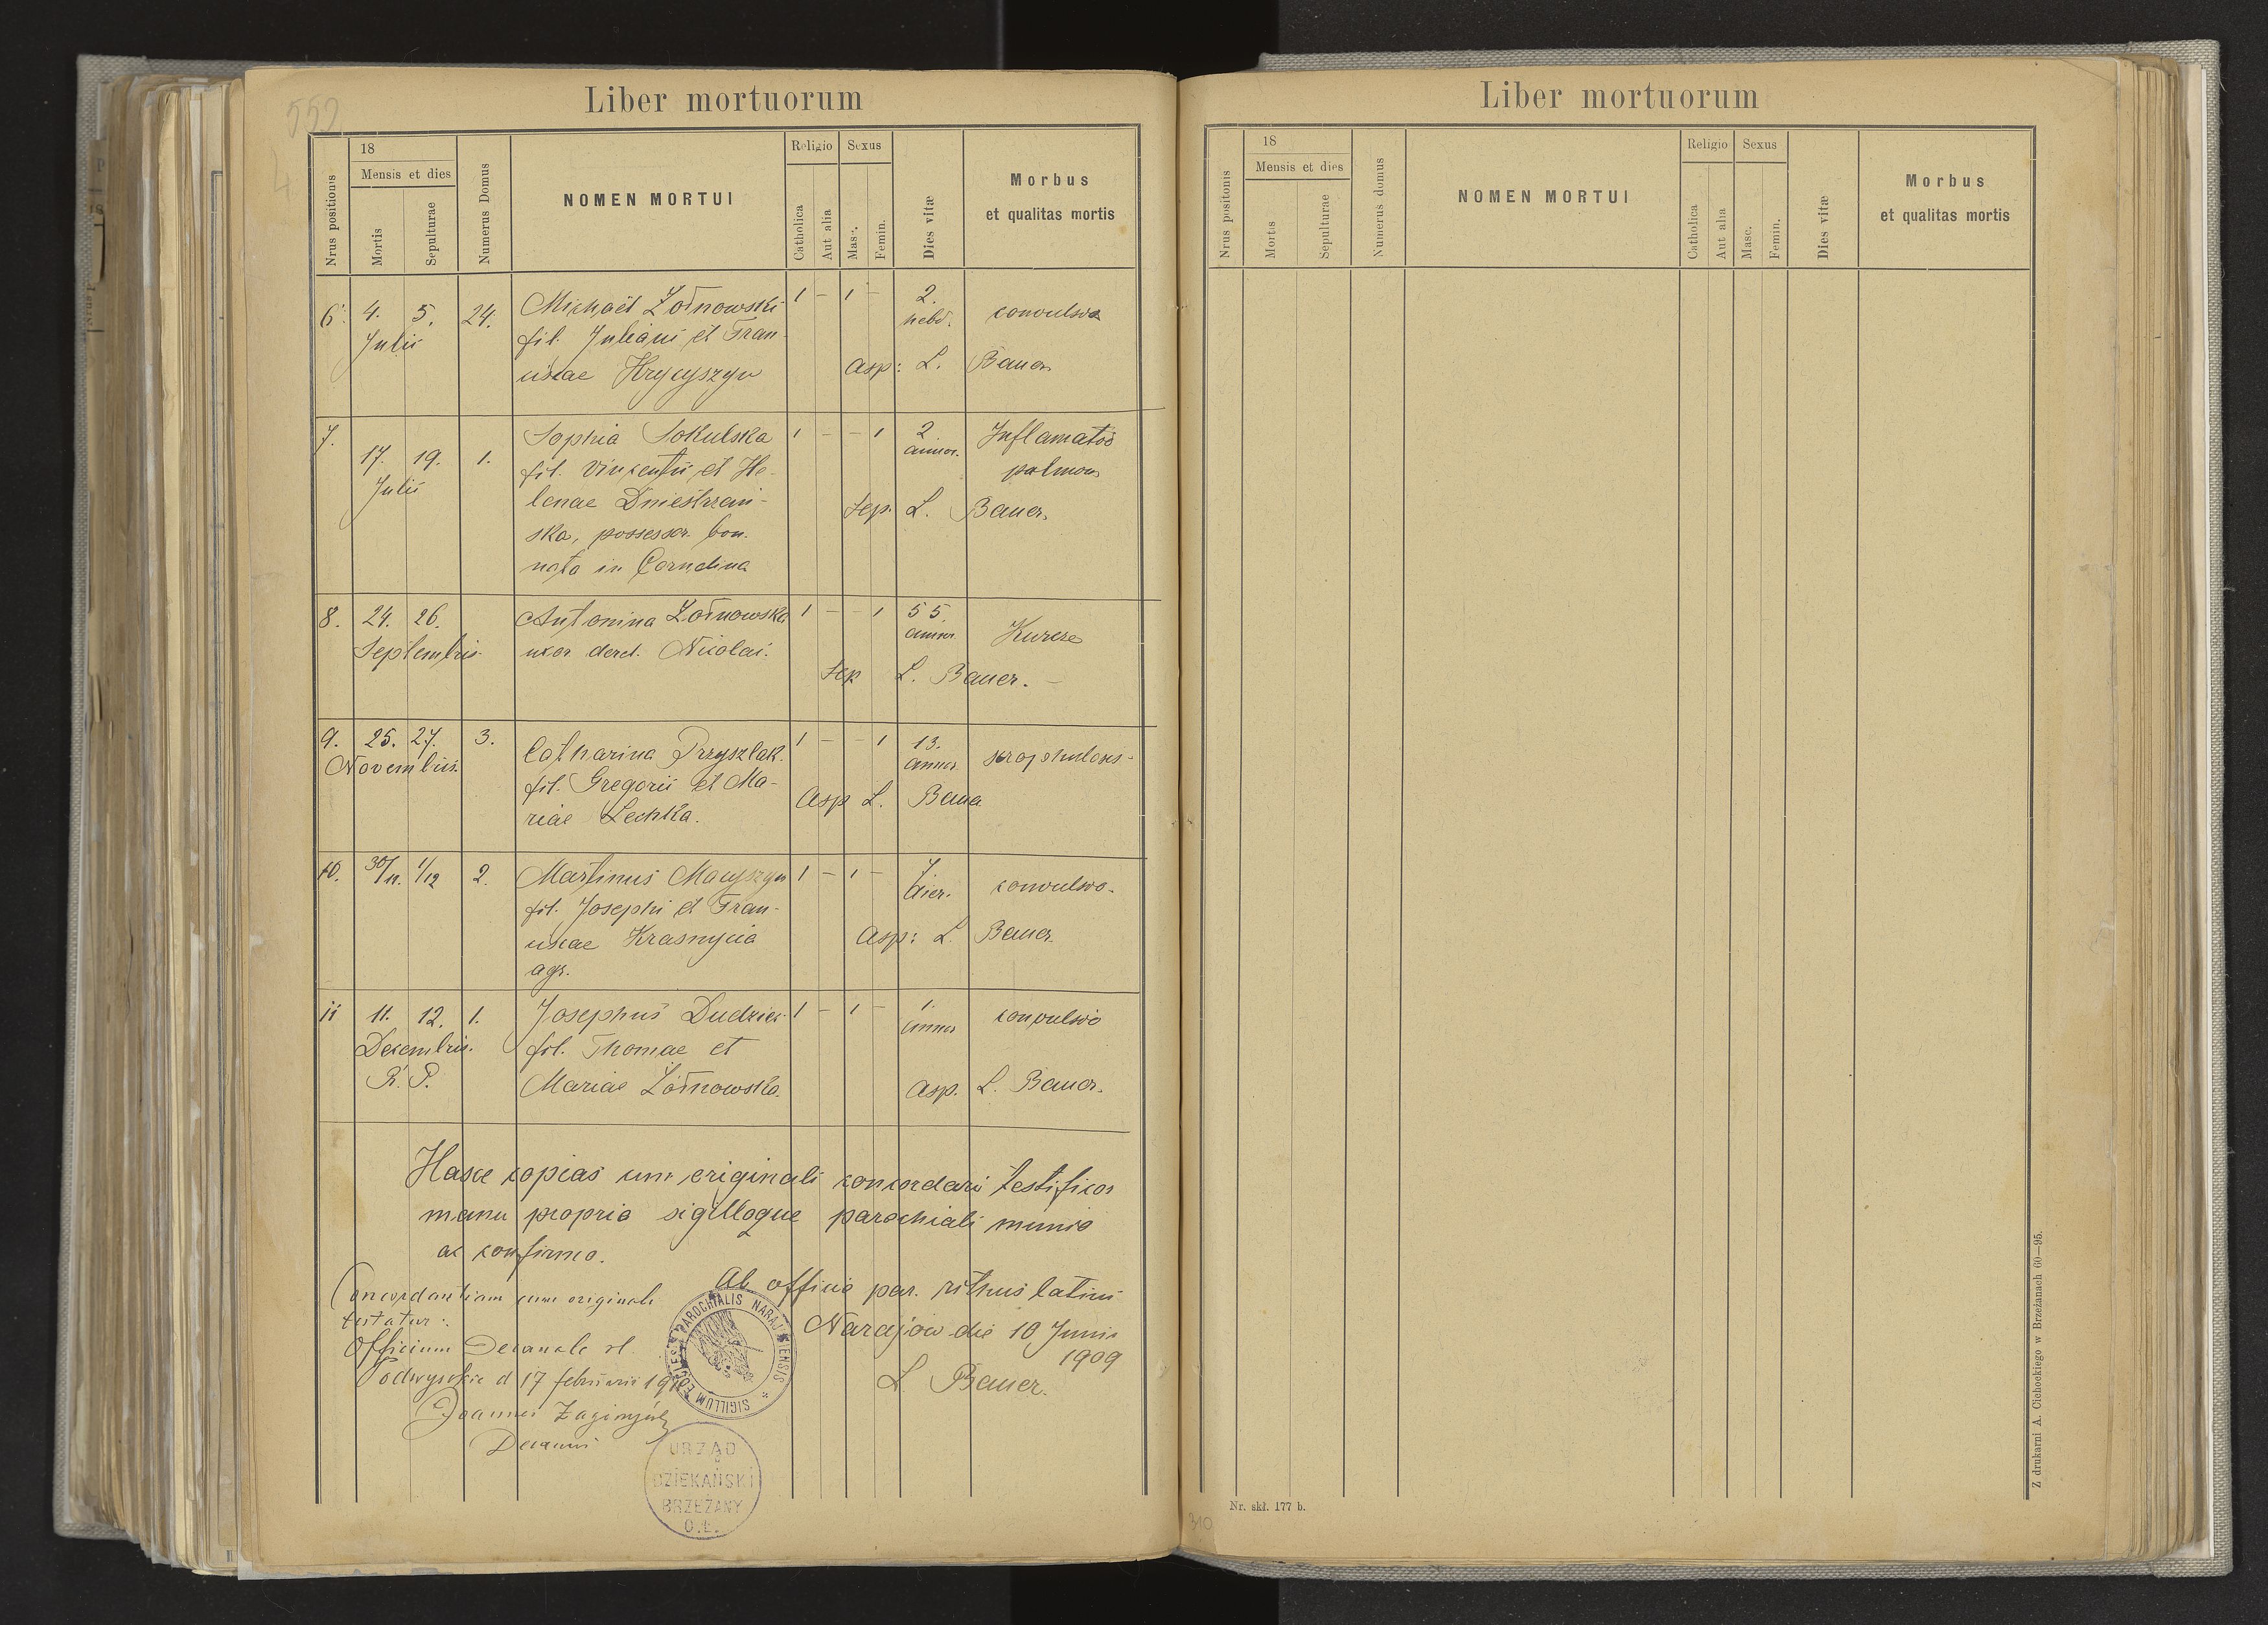 552
4
Liber mortuorum
Nrus positionis
18
Mensis et dies
Mortis
Sepulturae
Numerus Domus
NOMEN MORTUI
Religio
Catholica
Aut alia
Sexus
Masc.
Femin.
Dies vitæ
Morbus
et qualitas mortis
6. 4. 5. 24. Michaël Żołnowski 1 – 1 – 2. convulsio
Julii fil. Juliani et Fran- hebd.
ciscae Hrycyszyn Asp: L. Bauer
7. Sophia Sokulska 1 – – 1 2 Inflamatio
17. 19. 1. fil. Vincentii et He- annor. pulmon
Julii lenae Dniestrzań-
Sep. L. Bauer.
ska, possessor. bon.
nata in
8. 24. 26. Antonina Żołnowska 1 – – 1 55
Septembris uxor derel. Nicolai. annor.
Sep L. Bauer. –
9. 25. 27. 3. Catharina Przyszlak. 1 – – 1 13.
Novembris. fil. Gregorii et Ma- annor
riae Lechka. Asp L. Bauer
10. 30/11. 1/12 2. Martinus Macyszyn 1 – 1 – 7 convulsio.
fil. Josephi et Fran- dier.
ciscae Krasnycia Asp: L. Bauer.
agr.
11 11. 12. 1. Josephus Dudzicz 1 – 1 – 1. convulsio
Decembris. fil. Thomae et annor
R. P. Mariae Żołnowska. Asp. L. Bauer.
Hasce copias cum originali concordari testificor
manu propria sigilloque parochiali munio
ac confirmo.
Ab officio par. rithus latini
Narajow die 10 Junii
1909
L. Bauer.
Concordantiam cum originali
testatur:
Officium Decanale rl.
Podwysokie d 17 februarii 1910
Joannes
Decanus
SIGILLUM ECCLESIAE PAROCHIALIS NARAJOWIENSIS *
URZĄD
DZIEKAŃSKI
BRZEŻANY
O.Ł.
Liber mortuorum
Nrus positonis
18
Mensis et dies
Mortis
Sepulturae
Numerus domus
NOMEN MORTUI
Religio
Catholica
Aut alia
Sexus
Masc.
Femin.
Dies vitæ
Morbus
et qualitas mortis
Nr. skł. 177 b.
Z drukarni A. Cichockiego w Brzeżanach 60—95.
310